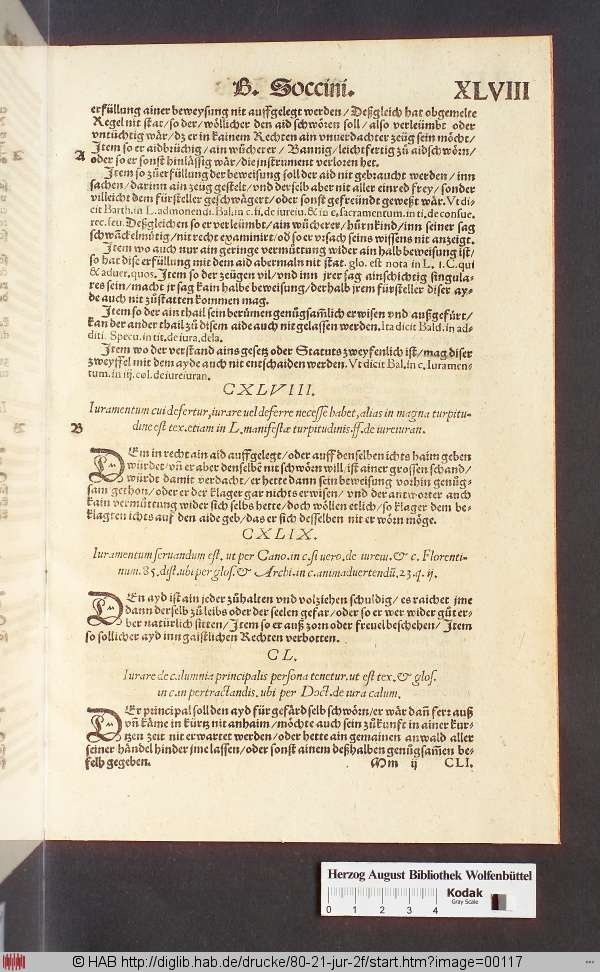 B. Soccini. XLVIII
erfüllung ainer beweysung nit auffgelegt werden / Deßgleich hat obgemelte
Regel nit stat / so der / wöllicher den aid schwören soll / also verleümbt oder
vntüchtig wär / dz er in kainem Rechten ain vnuerdachter zeüg sein möcht /
Item so er aidbrüchig / ain wücherer / Bannig / leichtfertig zü aidschwörn /
A oder so er sonst hinlässig wär / die instrument verloren het.
Item so zü erfüllung der beweisung soll der aid nit gebraucht werden / inn
sachen / darinn ain zeüg gestelt / vnd derselb aber nit aller einred frey / sonder
villeicht dem fürsteller geschwägert / oder sonst gefreündt geweßt wär. Vt di-
cit Barth. in L. admonendi. Bal. in c. fi. de iureiu. & in c, sacramentum. in ti, de consue,
rec. feu. Deßgleichen so er verleümbt / ain wücherer / hürnkind / inn seiner sag
schwäckelmütig / nit recht examinirt / od so er vrsach seins wissens nit anzeigt.
Item wo auch nur ain geringe vermüttung wider ain halb beweisung ist /
so hat dise erfüllung mit dem aid abermaln nit stat. glo. est nota in L. 1. C. qui
& aduer. quos. Item so der zeügen vil / vnd inn jrer sag ainschichtig singula-
res sein / macht jr sag kain halbe beweisung / derhalb jrem fürsteller diser ay-
de auch nit züstatten kommen mag.
Item so der ain thail sein berümen genügsamlich erwisen vnd außgefürt /
kan der ander thail zü disem aide auch nit gelassen werden. Ita dicit Bald. in ad-
diti. Specu. in tit. de iura, dela.
Item wo der verstand ains gesetz oder Statuts zweyfenlich ist / mag diser
zweyffel mit dem ayde auch nit entschaiden werden. Vt dicit Bal. in c. Iuramen-
tum. in iij. col. de iureiuran.
CXLVIII.
Iuramentum cui defertur, iurare uel deferre necesse habet, alias in magna turpitu-
B dine est tex. etiam in L. manifestæ turpitudinis. ff. de iureiuran.
DEm in recht ain aid auffgelegt / oder auff denselben ichts haim geben
würdet / vñ er aber denselbē nit schwörn will, ist ainer grossen schand /
würdt damit verdacht / er hette dann sein beweisung vorhin genüg-
sam gethon / oder er der klager gar nichts erwisen / vnd der antworter auch
kain vermüttung wider sich selbs hette / doch wöllen etlich / so klager dem be-
klagten ichts auf den aide geb / das er sich desselben nit erwörn möge.
CXLIX.
Iuramentum seruandum est, ut per Cano. in c. si uero. de iureiu. & c. Florenti-
num. 85. dist. ubi per glos. & Archi. in c. animaduertendū. 23. q. ij.
DEn ayd ist ain jeder zühalten vnd volziehen schuldig / es raichet jme
dann derselb zü leibs oder der seelen gefar / oder so er wer wider güt er-
ber natürlich sitten / Item so er auß zorn oder freuel beschehen / Item
so sollicher ayd inn gaistlichen Rechten verbotten.
CL.
Iurare de calumnia principalis persona tenetur. ut est tex. & glos.
in c. in pertractandis. ubi per Doct. de iura calum.
DEr principal soll den ayd für gefärd selb schwörn / er wär dañ ferr auß
vñ käme in kürtz nit anhaim / möchte auch sein zükunft in ainer kur-
tzen zeit nit erwartet werden / oder hette ain gemainen anwald aller
seiner händel hinder jme lassen / oder sonst ainem deßhalben genügsamen be-
felh gegeben. Mm ij CLI.
Herzog August Bibliothek Wolfenbüttel
0 1 2 3 4
Kodak
Gray Scale
© HAB http://diglib.hab.de/drucke/80-21-jur-2f/start.htm?image=00117